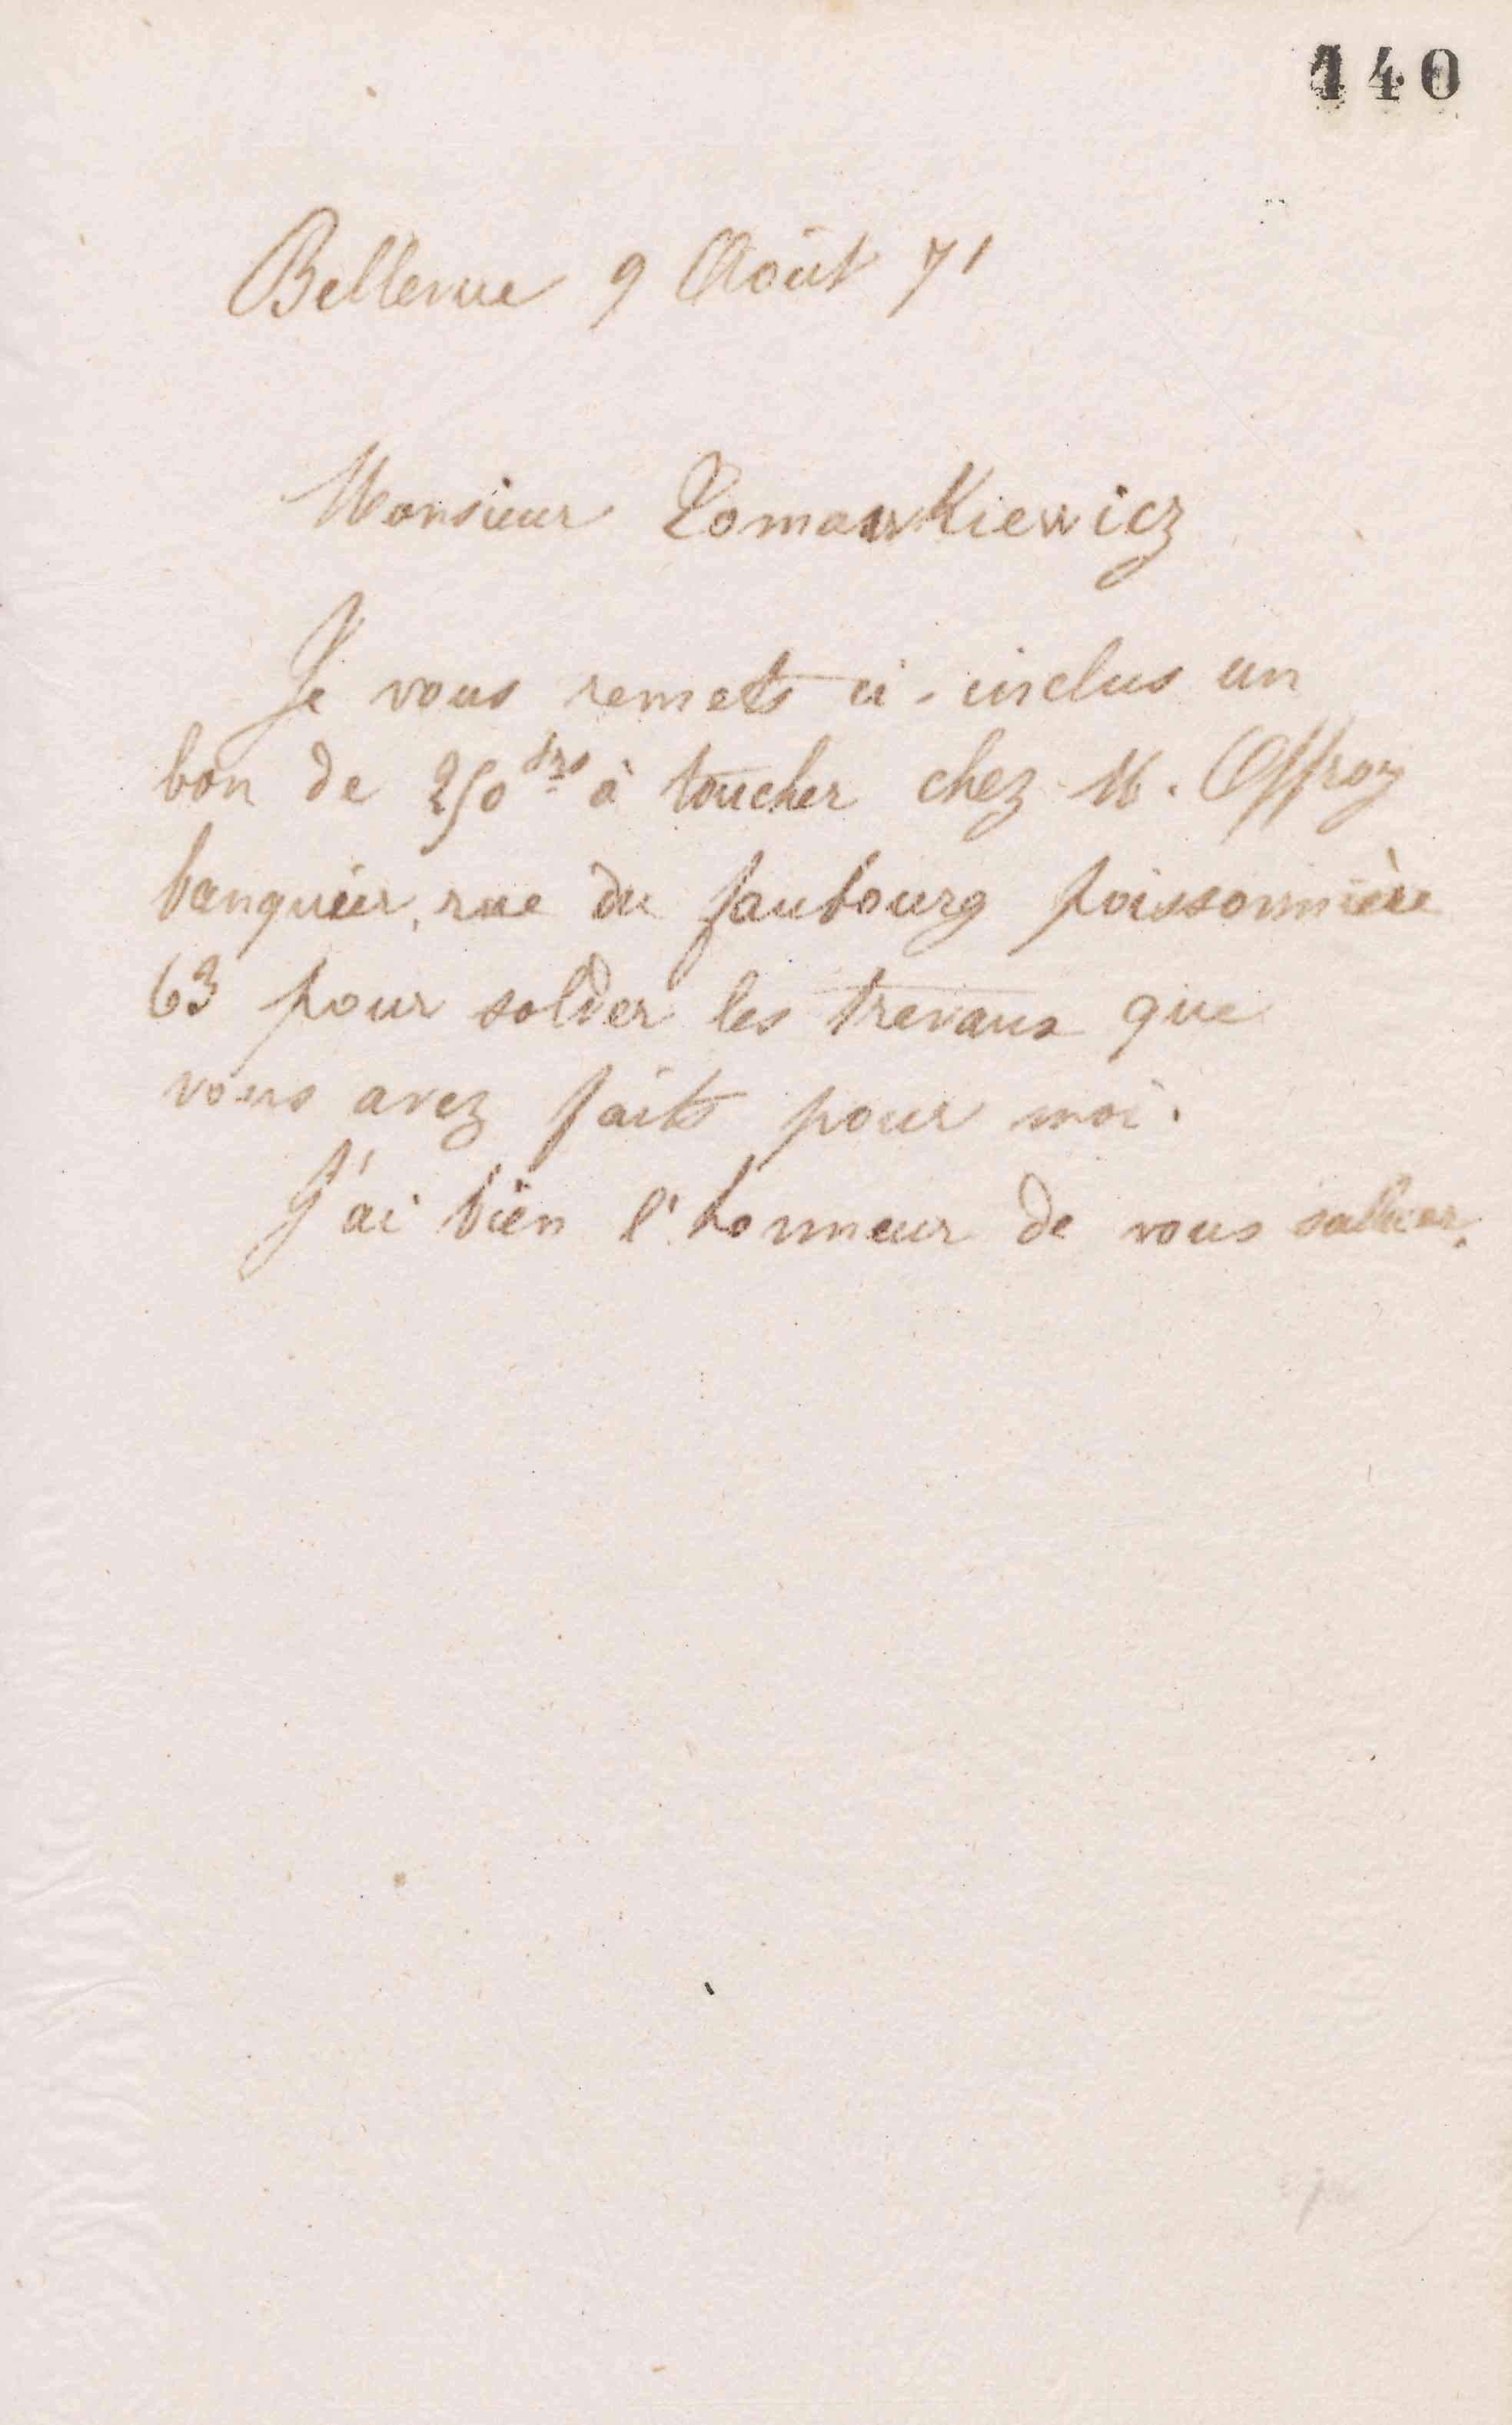 140
Bellevue 9 Août 71
Monsieur
Je vous remets ci-inclus un
bon de 250 frs à toucher chez M. Offroy
banquier, rue du faubourg poissonnière
63 pour solder les travaux que
vous avez faits pour moi.
J'ai bien l'honneur de vous saluer.